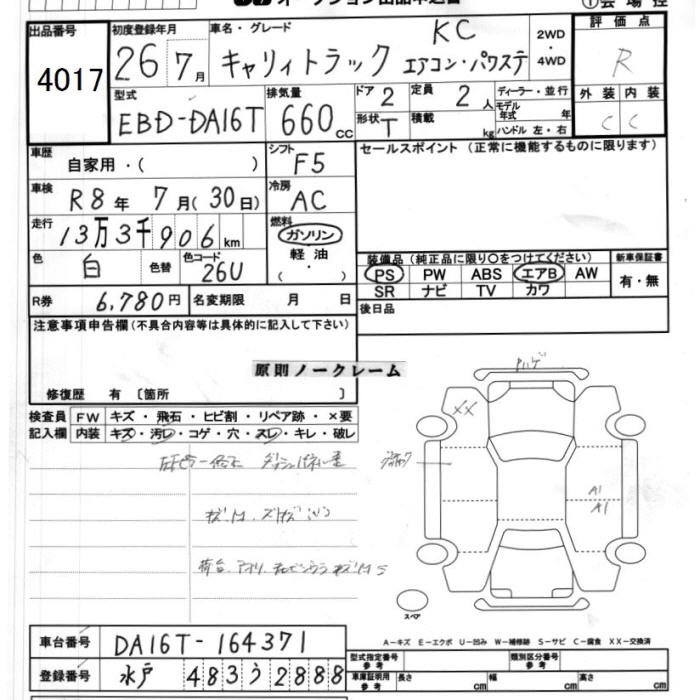 出品番号
4017
初度登録年月
26年7月
車名・グレード
KC
キャリィトラック エアコン・パワステ
2WD
・
4WD
評価点
R
外装 内装
C C
型式
EBD-DA16T
排気量
660cc
ドア
2
定員
2人
形状
T
積載
kg
ディーラー・並行
モデル年式 年
ハンドル 左・右
車歴
自家用・( )
シフト
F5
セールスポイント (正常に機能するものに限ります)
車検
R8年 7月(30日)
冷房
AC
走行
13万3千906km
燃料
ガソリン
軽油
・( )
色
白
色替
色コード
26U
装備品 (純正品に限り○をつけてください)
PS PW ABS エアB AW
SR ナビ TV カワ
新車保証書
有・無
R券
6,780円
名変期限 月 日
後日品
注意事項申告欄(不具合内容等は具体的に記入して下さい)
原則ノークレーム
修復歴 有 [箇所 ]
検査員
記入欄
FW キズ・飛石・ヒビ割・リペア跡・×要
内装 キズ・汚レ・コゲ・穴・スレ・キレ・破レ
XX
A1
A1
スペア
A－キズ E－エクボ U－凹み W－補修跡 S－サビ C－腐食 XX－交換済
車台番号
DA16T-164371
登録番号
水戸 483う2888
型式指定番号
参考
類別区分番号
参考
車庫証明用
参考
長さ cm
幅 cm
高さ cm